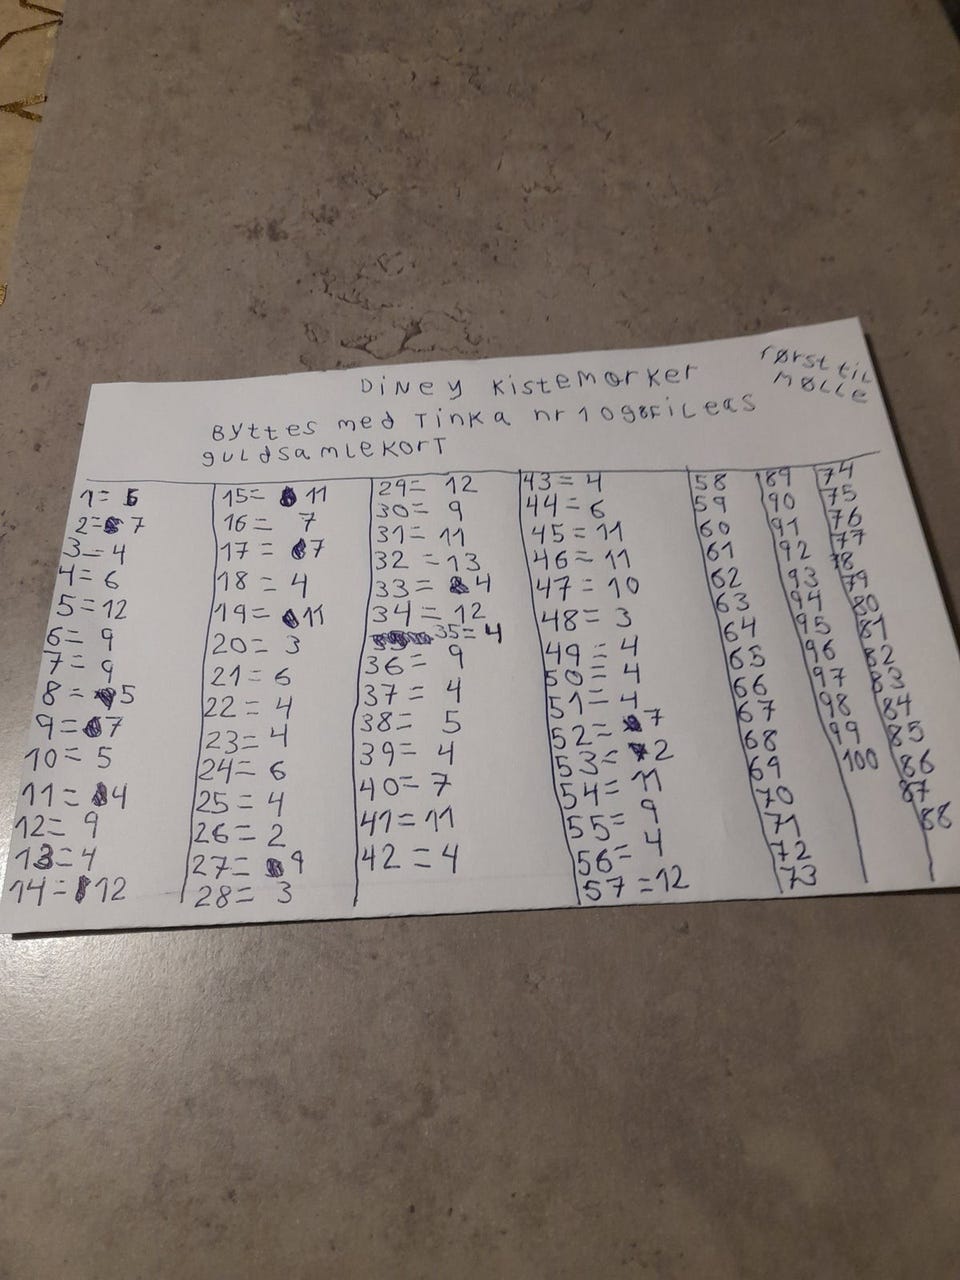 Diney Kistemorker
Først til
mølle
Byttes med Tinka nr 1 og 8 Fileas
guldsamlekort
1= 5
2= 7
3= 4
4= 6
5=12
6= 9
7= 9
8= 5
9= 7
10= 5
11= 4
12= 9
13=4
14= 12
15= 11
16= 7
17= 7
18= 4
19= 11
20= 3
21= 6
22= 4
23= 4
24= 6
25= 4
26= 2
27= 9
28= 3
29= 12
30= 9
31= 11
32 =13
33= 4
34= 12
35= 4
36= 9
37= 4
38= 5
39= 4
40= 7
41=11
42 = 4
43= 4
44= 6
45= 11
46= 11
47= 10
48= 3
49= 4
50= 4
51= 4
52= 7
53= 2
54= 11
55= 9
56= 4
57 =12
58
59
60
61
62
63
64
65
66
67
68
69
70
71
72
73
89
90
91
92
93
94
95
96
97
98
99
100
74
75
76
77
78
79
80
81
82
83
84
85
86
87
88